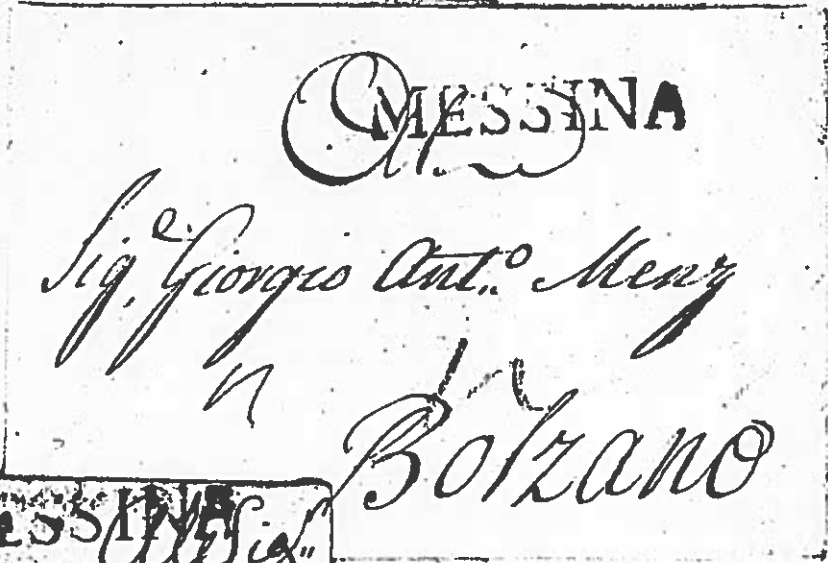 MESSINA
Al
Sig.e Giorgio Ant.o Menz
Bolzano
ESSINA
Al Sig.